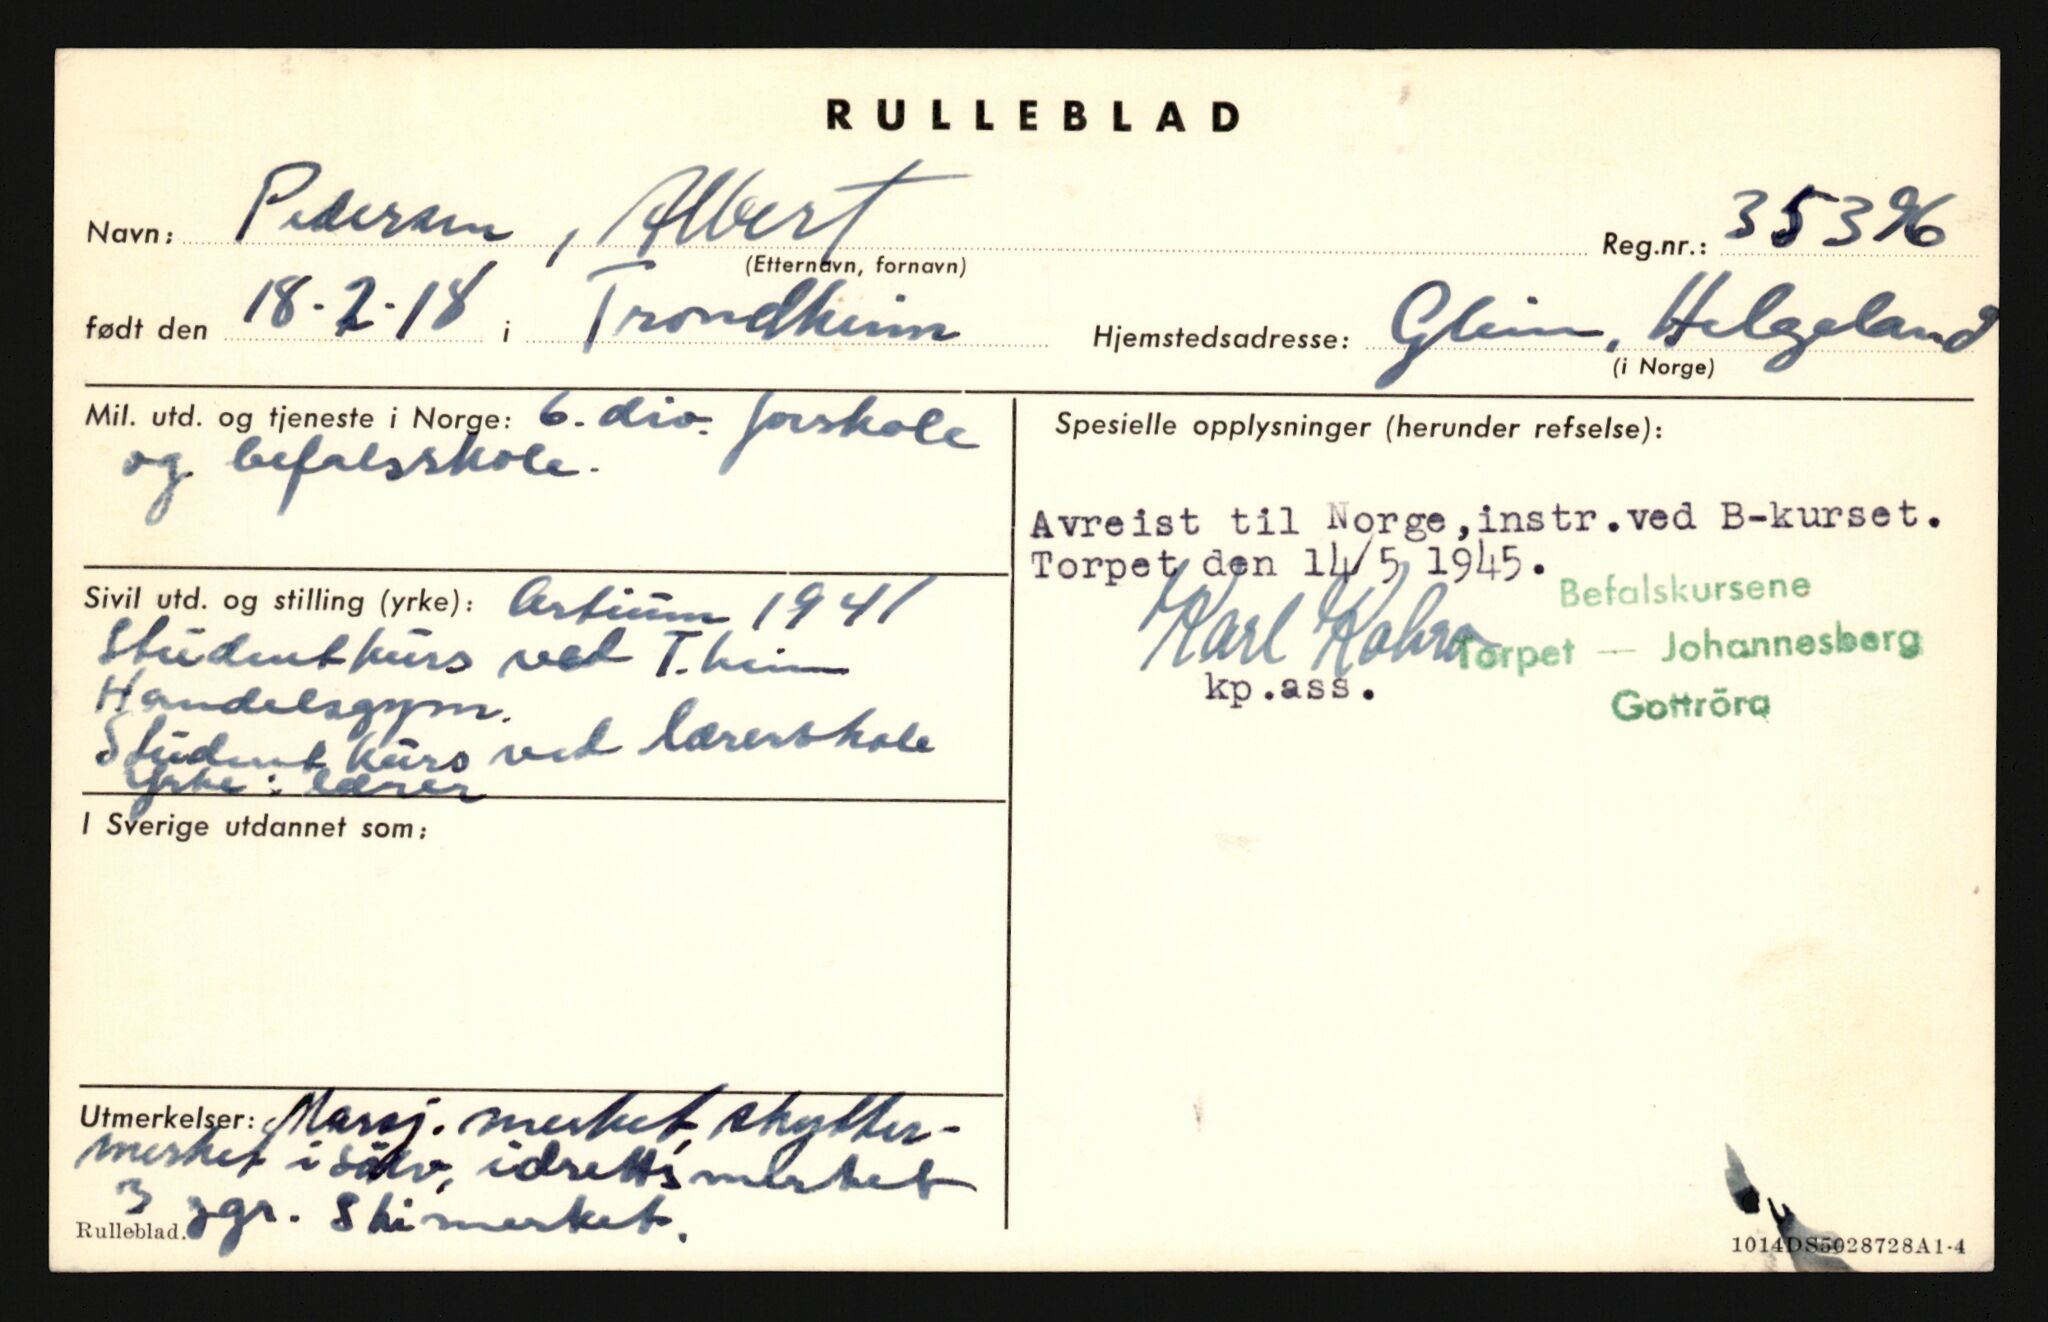 RULLEBLAD
Navn: Pedersen, Albert Reg.nr.: 35396
(Etternavn, fornavn)
født den 18-2-18 i Trondheim Hjemstedsadresse: Glein, Helgeland
(i Norge)
Mil. utd. og tjeneste i Norge: 6. div. forskole
og befalsskole.
Sivil utd. og stilling (yrke): Artium 1941
Studentkurs ved T.heim
Handelsgym.
Student kurs ved lærerskole
Yrke: lærer
I Sverige utdannet som:
Utmerkelser: Marsj. merket, skytter-
merket i sölv, idrettsmerket
3 ggr. Skimerket.
Rulleblad.
Spesielle opplysninger (herunder refselse):
Avreist til Norge, instr.ved B-kurset.
Torpet den 14/5 1945.
Karl
kp.ass.
Befalskursene
Torpet — Johannesberg
Gottröra
1014DS5028728A1-4